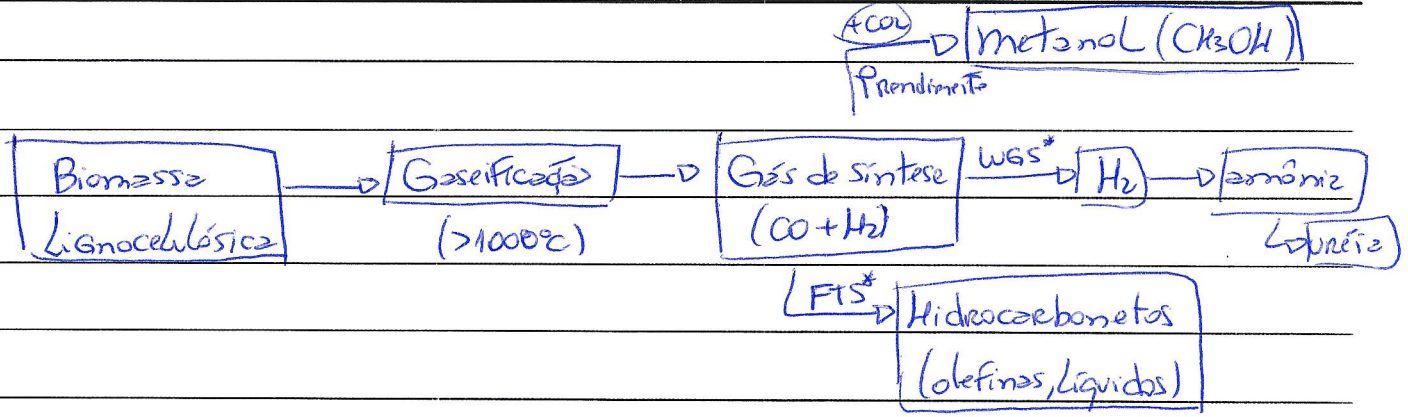 +CO2 Metanol (CH3OH)
↑rendimento
Biomassa Lignocelulósica
Gaseificação (>1000°C)
Gás de síntese (CO+H2)
WGS* H2 amônia
uréia
FTS* Hidrocarbonetos
(olefinas, Líquidos)